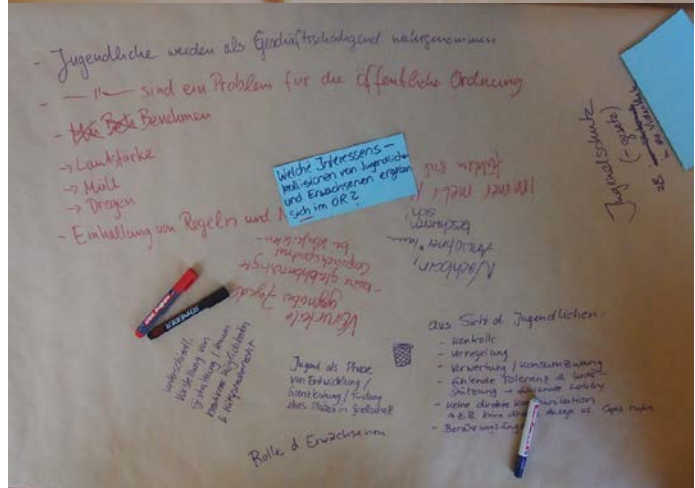 - Jugendliche werden als Geschäftsschädigend wahrgenommen
- —"— sind ein Problem für die öffentliche Ordnung
- Benehmen
→ Lautstärke
→ Müll
→ Drogen
- Einhaltung von Regeln und
Welche Interessens-
kollisionen von Jugendlichen
und Erwachsenen ergeben
sich im ÖR?
Immer mehr
fühlen sich
Nachbarn,
Anwohner
beschweren
sich,
Vorurteile
gegenüber Jugend
- keine gleichberechtigte
Gesprächspartner
Jugendschutz
(-gesetz)
zB.
unterschiedl.
Vorstellung von
Gestaltung / Raum
Jugend als Phase
von Entwicklung /
Grenzsetzung / Findung
des Platzes in Gesellschaft
Rolle d. Erwachsenen
aus Sicht d. Jugendlichen:
- Kontrolle
- Verregelung
- Verwertung / Konsumzwang
- fehlende Toleranz & Unter-
stützung → Lobby
- keine direkte Kommunikation
z.B. keine Ansage vs. Cops rufen
SCHNEIDER